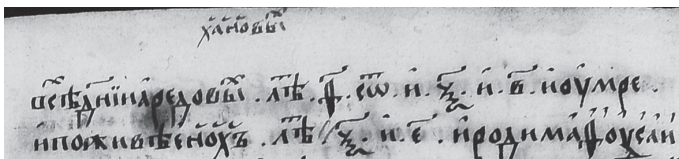 ханⷪ҇вы
вс҇ѣ дн҃и и҆аредовы . лѣⷮ . ѳ҃ . сѿ . и҆ . ѯ҃ . и҆ . в҃ . и҆ оу҆мре .
и҆ поживѣ е҆но́хъ . лѣⷮ / ѯ҃ . и҆ . е҃ . и҆ роди маѳоусаи